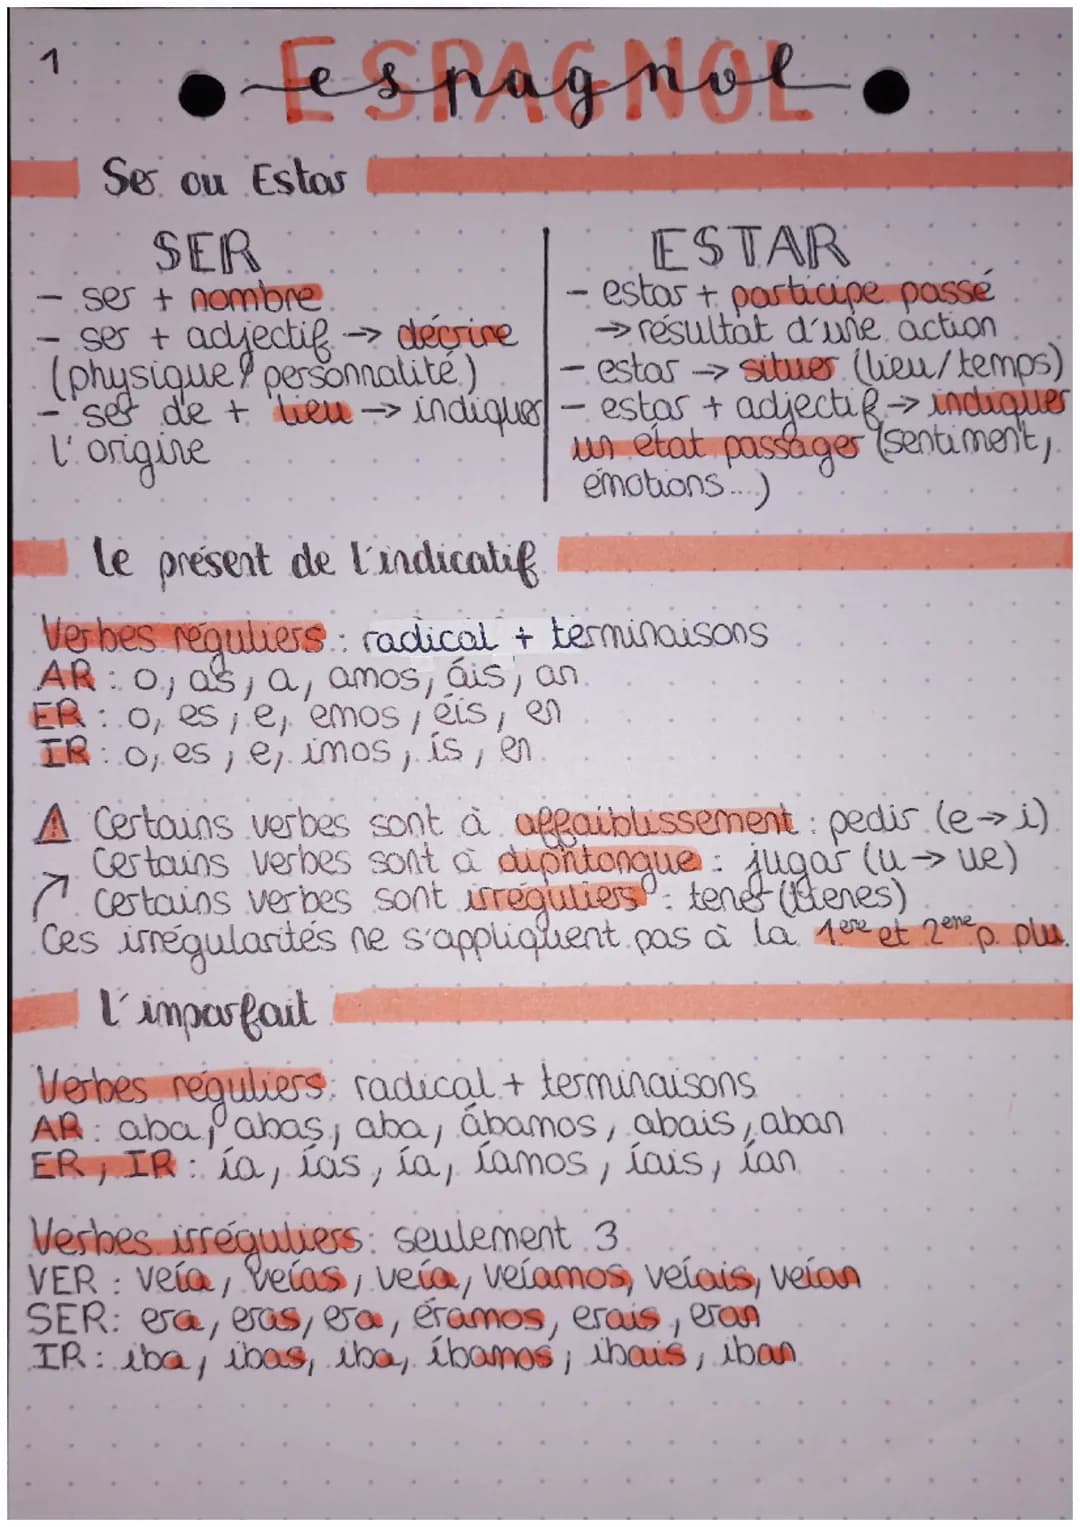 1
ESPAGNOL
espagnol
Ser ou Estar
SER
- ser + nombre
- ser + adjectif → décrire
(physique/personnalité)
- ser de + lieu → indiquer
l'origine
ESTAR
- estar + participe passé
→ résultat d'une action
- estar → situer (lieu/temps)
- estar + adjectif → indiquer
un état passager (sentiment,
émotions...)
le présent de l'indicatif
Verbes réguliers : radical + terminaisons
AR : o, as, a, amos, áis, an
ER : o, es, e, emos, éis, en
IR : o, es, e, imos, ís, en
⚠ Certains verbes sont à affaiblissement : pedir (e → i)
Certains verbes sont à diphtongue : jugar (u → ue)
↗ Certains verbes sont irréguliers : tener (tienes)
Ces irrégularités ne s'appliquent pas à la 1ere et 2eme p. plu.
l'imparfait
Verbes réguliers : radical + terminaisons
AR : aba, abas, aba, ábamos, abais, aban
ER, IR : ía, ías, ía, íamos, íais, ían
Verbes irréguliers : seulement 3
VER : veía, veías, veía, veíamos, veíais, veían
SER : era, eras, era, éramos, erais, eran
IR : iba, ibas, iba, íbamos, ibais, iban